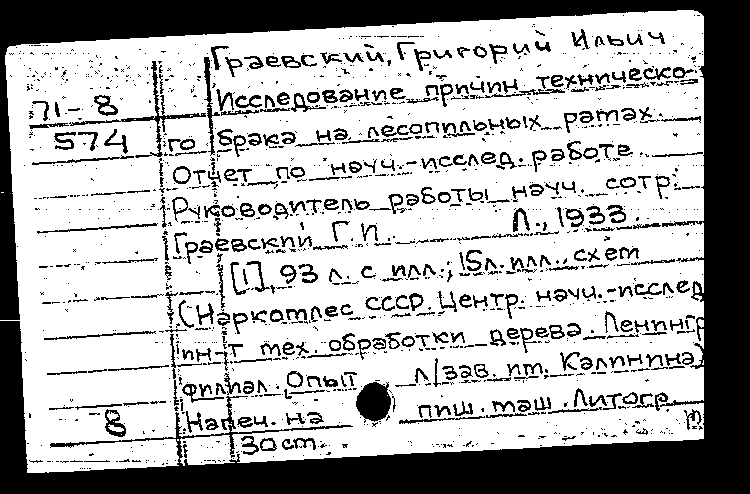 Граевский, Григорий Ильич
71-8 Исследование причин техническо-
574 го брака на лесопильных рамах.
Отчет по науч.-исслед. работе.
Руководитель работы науч. сотр.:
Граевский Г.И. Л., 1933.
[1], 93 л. с илл.; 15л. илл., схем
(Наркомлес СССР. Центр. науч.-исслед
ин-т мех. обработки дерева. Ленингр
филиал. Опыт л/зав. им. Калинина)
8 Напеч. на пиш. маш. Литогр.
30 cm.